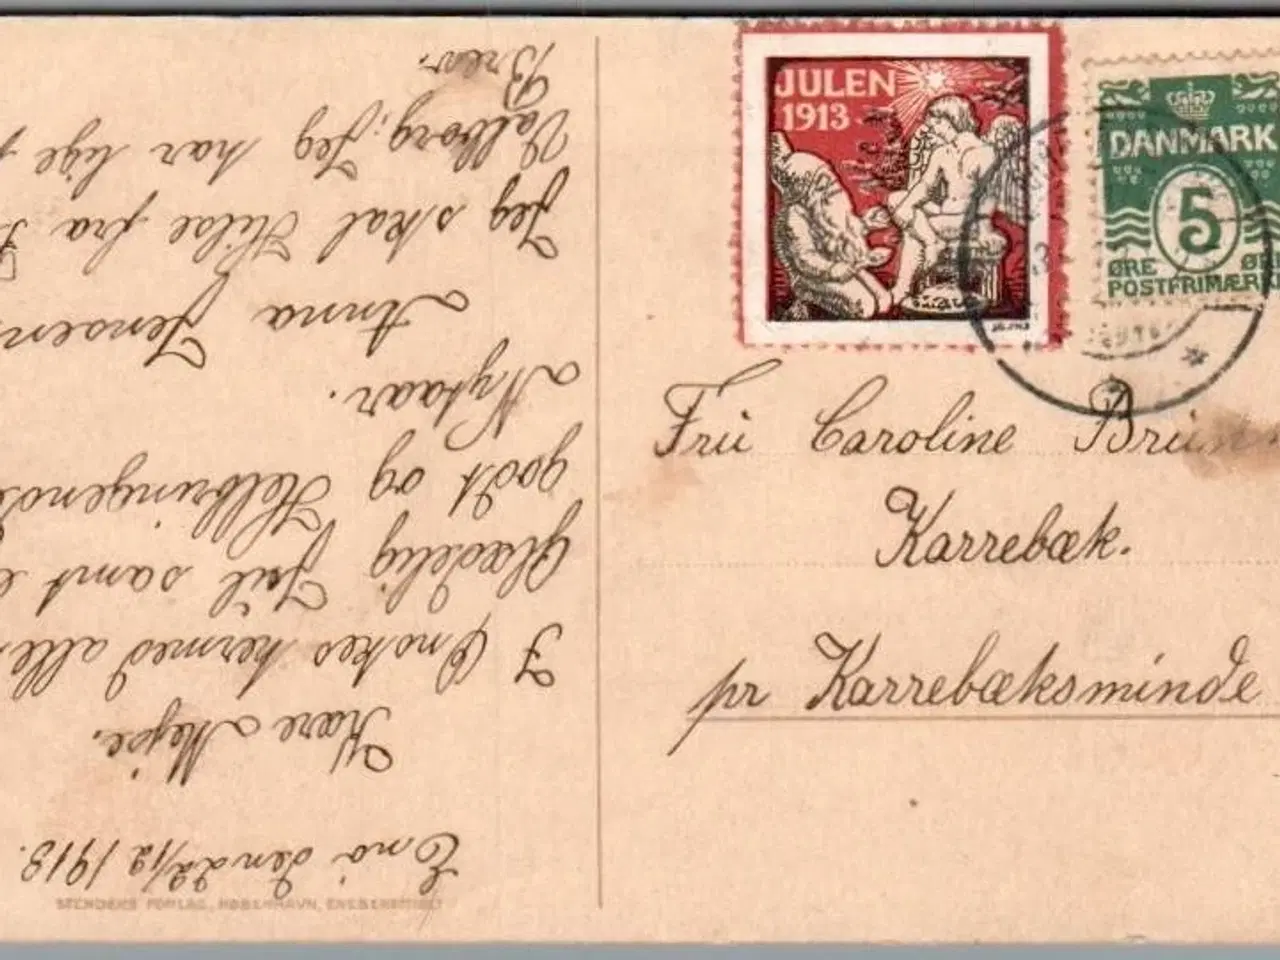 JULEN
1913
DANMARK
5
ØRE
POSTFRIMÆRKE
Frü Caroline
Karrebæk.
pr Karrebæksminde
Enö den 22/12 1913.
Kære Mejse.
I Ønskes hermed alle
Glædelig Jül samt
godt og
Nytaar.
Anna Jensen
Jeg skal Hilse fra
Valborg; Jeg har lige
Brev.
STENDERS FORLAG, KØBENHAVN, ENEBERETTIGET